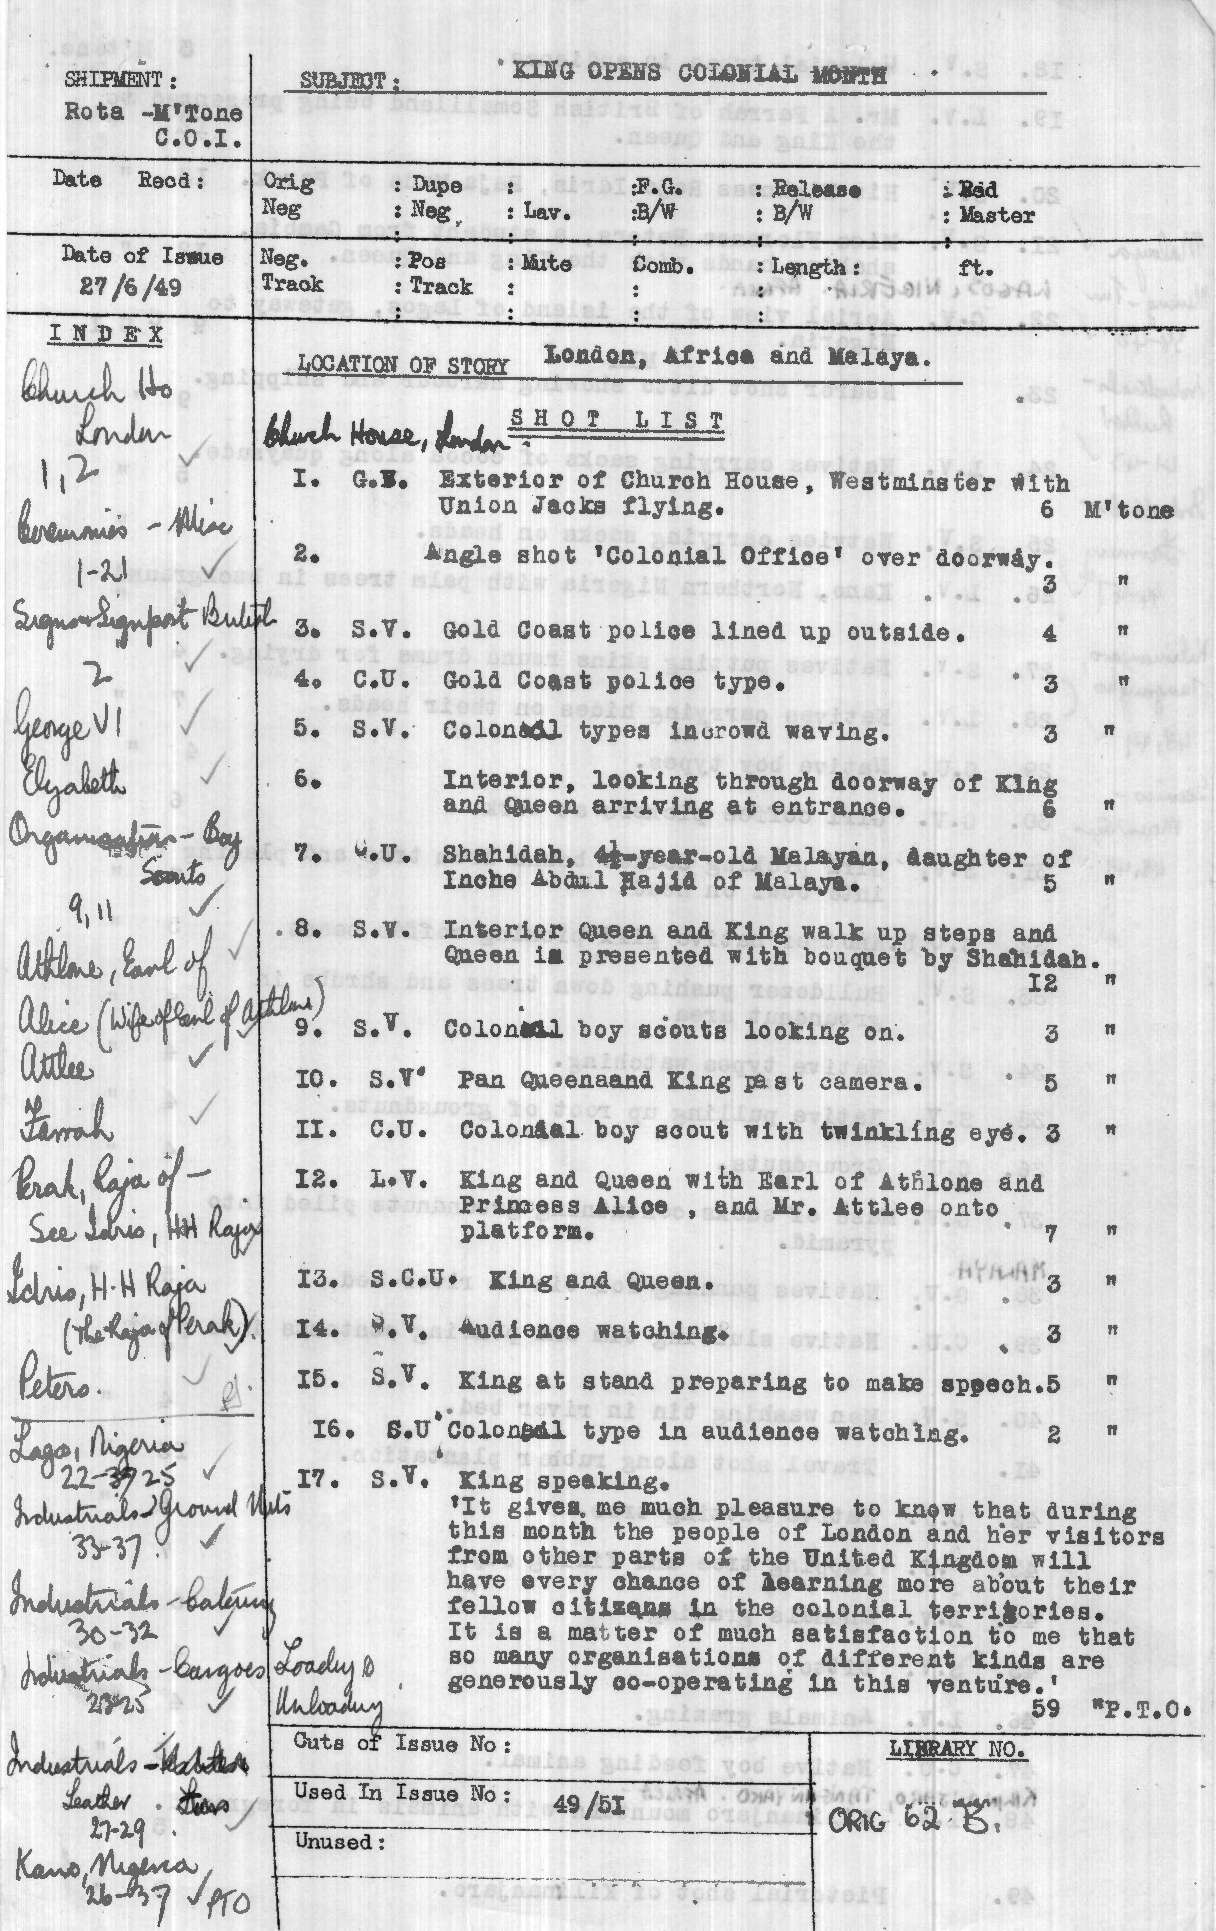 SHIPMENT:
Rota -M'Tone
C.O.I.
SUBJECT: KING OPENS COLONIAL MONTH
Date Recd: Orig : Dupe : :F.G. : Release : Red
Neg : Neg : Lav. :B/W : B/W : Master
Date of Issue Neg. : Pos : Mute Comb. : Length: ft.
27/6/49 Track : Track : : :
INDEX
LOCATION OF STORY London, Africa and Malaya.
SHOT LIST
Church House, London.
I. G.V. Exterior of Church House, Westminster with
Union Jacks flying. 6 M'tone
2. Angle shot 'Colonial Office' over doorway.
3 "
3. S.V. Gold Coast police lined up outside. 4 "
4. C.U. Gold Coast police type. 3 "
5. S.V. Colonial types incrowd waving. 3 "
6. Interior, looking through doorway of King
and Queen arriving at entrance. 6 "
7. C.U. Shahidah, 4½-year-old Malayan, daughter of
Inche Abdul Hajid of Malaya. 5 "
8. S.V. Interior Queen and King walk up steps and
Queen is presented with bouquet by Shahidah.
I2 "
9. S.V. Colonial boy scouts looking on. 3 "
IO. S.V. Pan Queenaand King past camera. 5 "
II. C.U. Colonial boy scout with twinkling eye. 3 "
I2. L.V. King and Queen with Earl of Athlone and
Princess Alice , and Mr. Attlee onto
platform. 7 "
I3. S.C.U. King and Queen. 3 "
I4. S.V. Audience watching. 3 "
I5. S.V. King at stand preparing to make speech.5 "
I6. S.U. Colonial type in audience watching. 2 "
I7. S.V. King speaking.
'It gives me much pleasure to know that during
this month the people of London and her visitors
from other parts of the United Kingdom will
have every chance of learning more about their
fellow citizens in the colonial territories.
It is a matter of much satisfaction to me that
so many organisations of different kinds are
generously co-operating in this venture.'
59 "P.T.O.
Church Ho
London
1,2
Ceremonies - Misc
1-21
Signs & Signpost British
2
George VI
Elizabeth
Organisation - Boy
Scouts
9, 11
Athlone, Earl of
Alice (Wife of Earl of Athlone)
Attlee
Farrah
Perak, Raja of -
See Idris, HH Raja
Idris, H-H Raja
(The Raja of Perak).
Peters.
Lagos, Nigeria
22-25
Industrials - Ground Nuts
33-37
Industrials - Catering
30-32
Industrials - Cargoes Loading &
Unloading
23-25
Industrials -
Leather
27-29
Kano, Nigeria
26-37 PTO
Cuts of Issue No:
Used In Issue No: 49/5I
Unused:
LIBRARY NO.
ORIG 62 B.